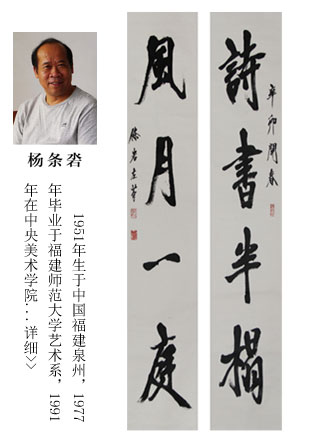 詩書半榻
辛卯開春
風月一庭
杨条沯
1951年生于中国福建泉州，1977
年毕业于福建师范大学艺术系，1991
年在中央美术学院...详细>>